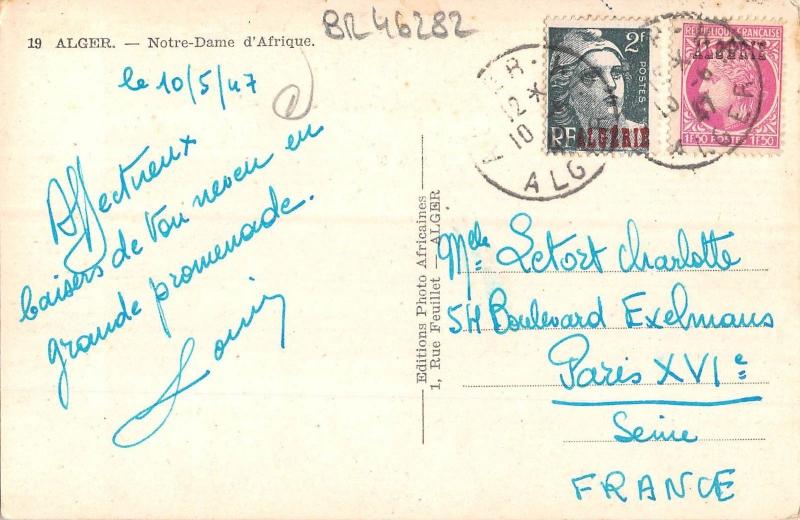 BR 46282
19 ALGER. — Notre-Dame d'Afrique.
le 10/5/47
Affectueux
baisers de ton neveu en
grande promenade.
Louis
Editions Photo Africaines
1, Rue Feuillet — ALGER
2F
POSTES
RF ALGÉRIE
RÉPUBLIQUE FRANÇAISE
ALGÉRIE
1F50 POSTES 1F50
12 *
10
ALG
ALGER
Melle Letort Charlotte
54 Boulevard Exelmans
Paris XVIe
Seine
FRANCE